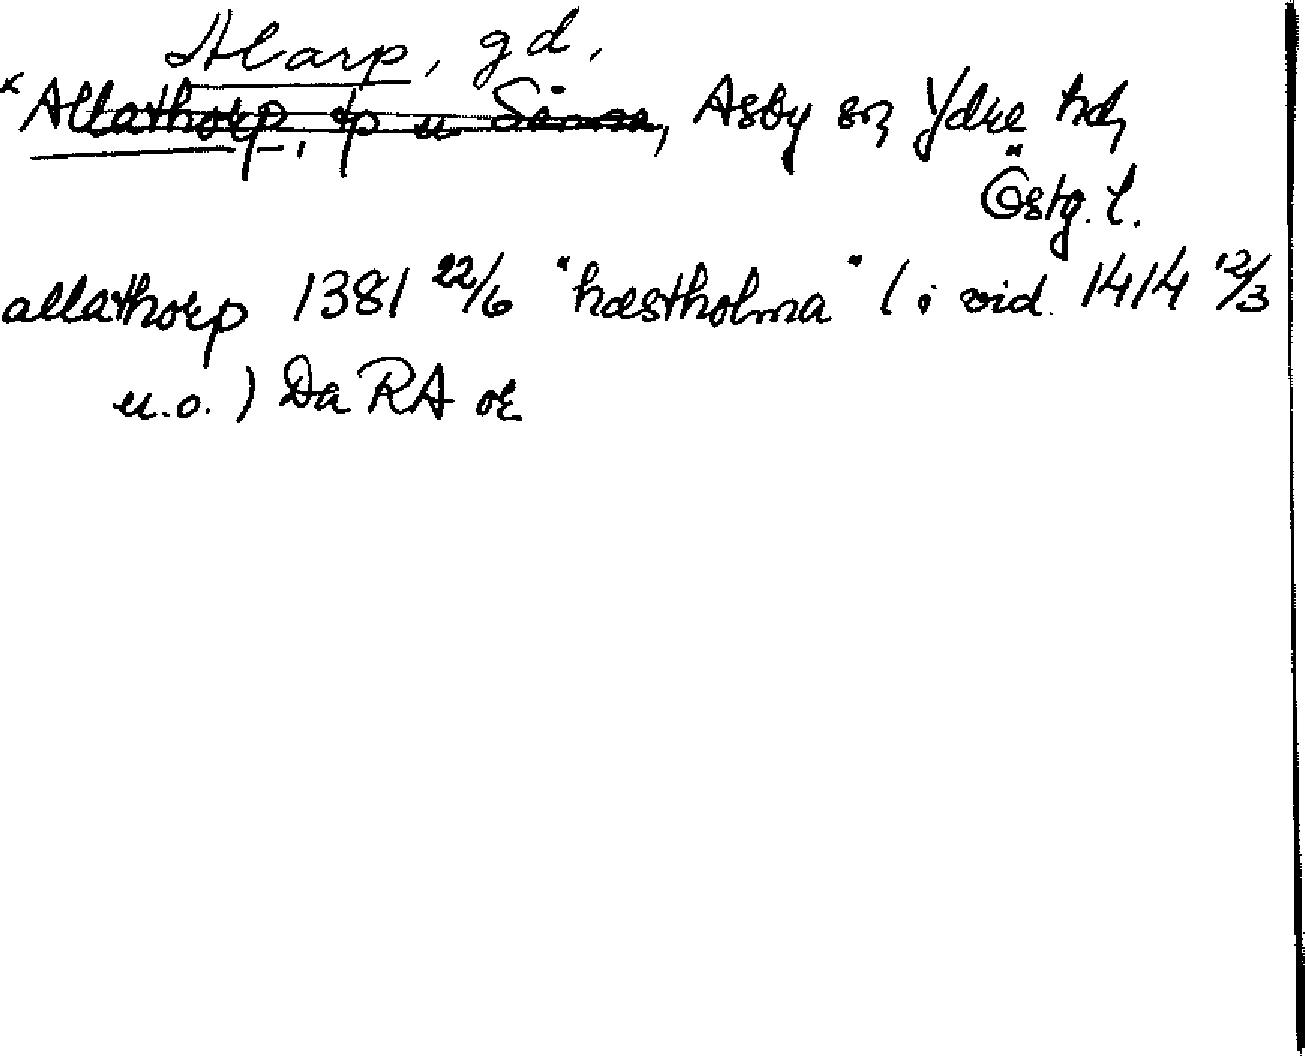 Alarp, gd.
*Allathorp, tp u Sånna, Asby sn, Ydre hd,
Östg. l.
allathorp 1381 22/6 "hæstholma" ( i vid. 1414 12/3
u.o. ) Da RA or